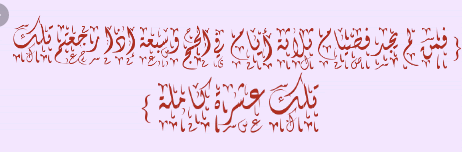 { فمن لم يجد فصيام ثلاثة أيام في الحج وسبعة إذا رجعتم تلك
تلك عشرة كاملة }